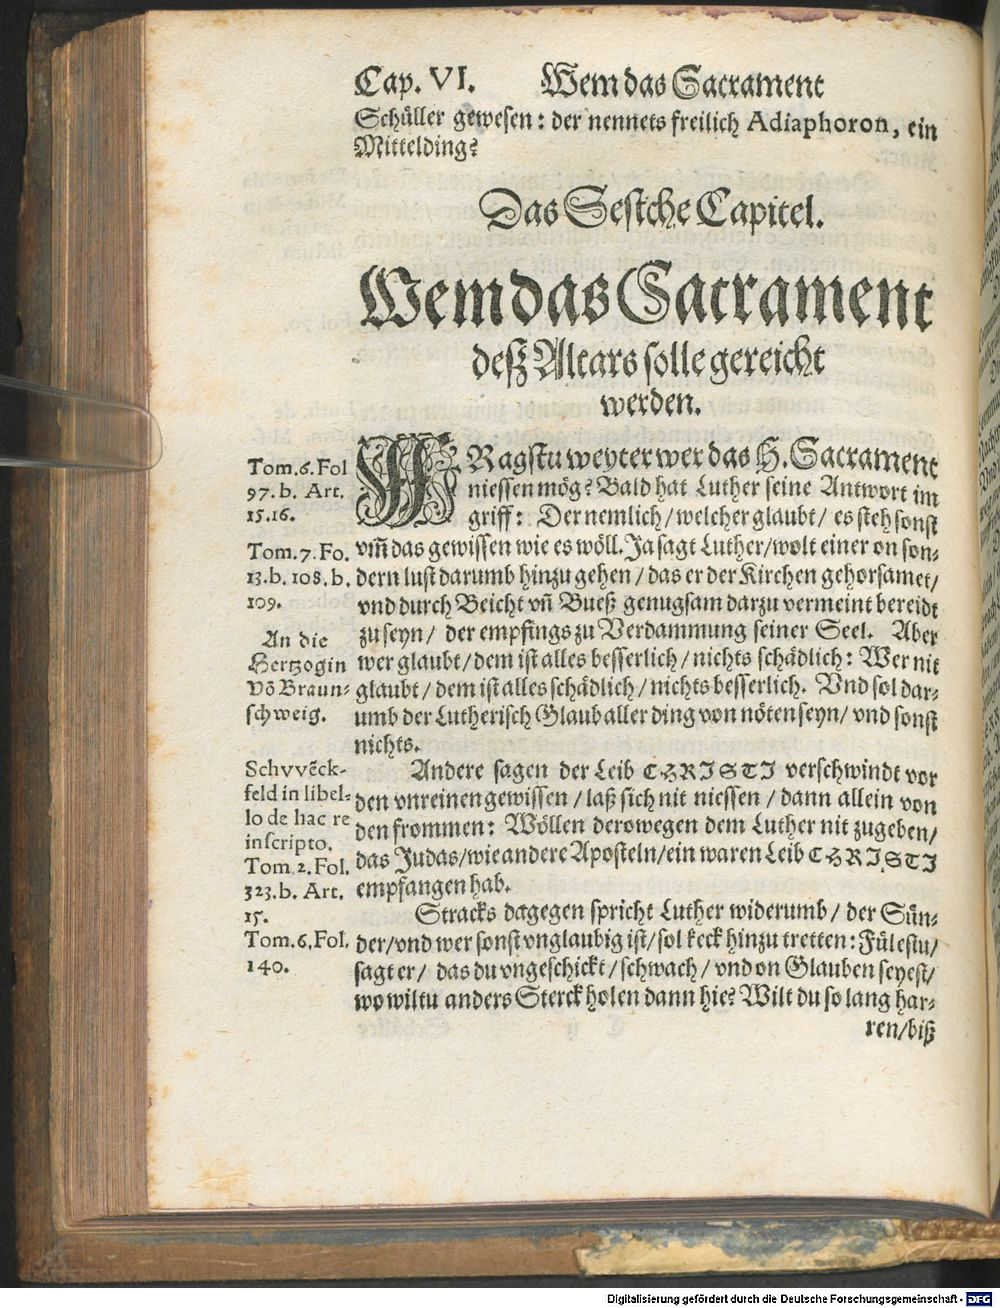 Cap. VI. Wem das Sacrament
Schüller gewesen: der nennets freilich Adiaphoron, ein
Mittelding?
Das Sestche Capitel.
Wem das Sacrament
deß Altars solle gereicht
werden.
FRagstu weyter wer das H. Sacrament
niessen mög? Bald hat Luther seine Antwort im
griff: Der nemlich/ welcher glaubt/ es steh sonst
vm̃ das gewissen wie es wöll. Ja sagt Luther/ wolt einer on son-
dern lust darumb hinzu gehen/ das er der Kirchen gehorsamet/
vnd durch Beicht vñ Bueß genugsam darzu vermeint bereidt
zu seyn/ der empfings zu Verdammung seiner Seel. Aber
wer glaubt/ dem ist alles besserlich/ nichts schädlich: Wer nit
glaubt/ dem ist alles schädlich/ nichts besserlich. Vnd sol dar-
umb der Lutherisch Glaub aller ding von nöten seyn/ vnd sonst
nichts.
Andere sagen der Leib CHRISTI verschwindt vor
den vnreinen gewissen/ laß sich nit niessen/ dann allein von
den frommen: Wöllen derowegen dem Luther nit zugeben/
das Judas/ wie andere Aposteln/ ein waren Leib CHRISTI
empfangen hab.
Stracks dagegen spricht Luther widerumb/ der Sün-
der/ vnd wer sonst vnglaubig ist/ sol keck hinzu tretten: Fülestu/
sagt er/ das du vngeschickt/ schwach/ vnd on Glauben seyest/
wo wiltu anders Sterck holen dann hie? Wilt du so lang har-
ren/ biß
Tom. 6. Fol
97. b. Art.
15.16.
Tom. 7. Fo.
13. b. 108. b.
109.
An die
Hertzogin
võ Braun-
schweig.
Schvvẽck-
feld in libel-
lo de hac re
inscripto.
Tom. 2. Fol.
323. b. Art.
15.
Tom. 6. Fol.
140.
Digitalisierung gefördert durch die Deutsche Forschungsgemeinschaft - DFG